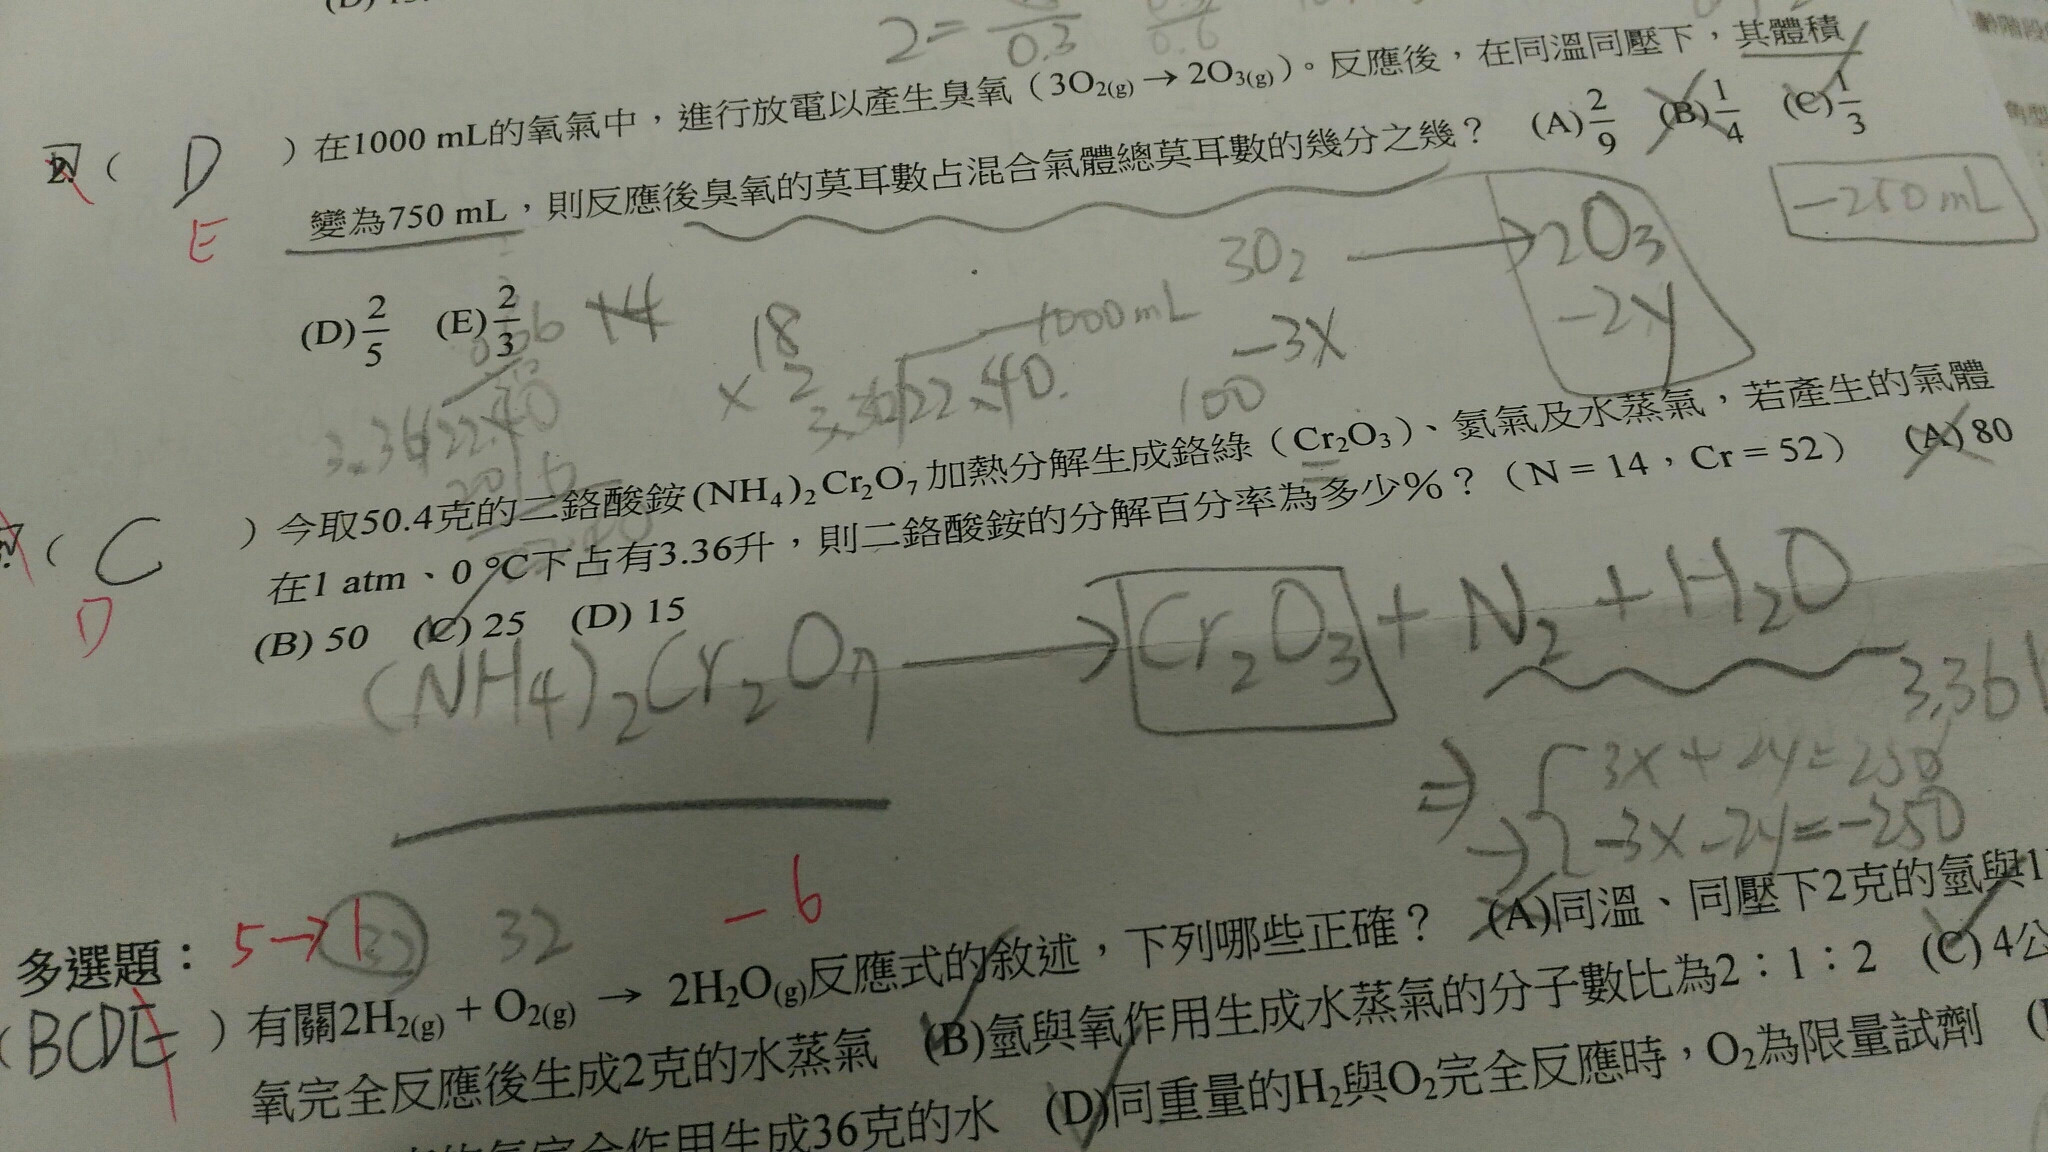 2 = 0.3 0.6
2. ( D ) 在1000 mL的氧氣中，進行放電以產生臭氧（3O₂(g) → 2O₃(g)）。反應後，在同溫同壓下，其體積
E 變為750 mL，則反應後臭氧的莫耳數占混合氣體總莫耳數的幾分之幾？ (A) 2/9 (B) 1/4 (C) 1/3
-250 mL
(D) 2/5 (E) 2/3
3O₂ → 2O₃
-3x -2y
1000 mL
14 18 × 2
3.36 22.40
100
( C ) 今取50.4克的二鉻酸銨(NH₄)₂Cr₂O₇加熱分解生成鉻綠（Cr₂O₃）、氮氣及水蒸氣，若產生的氣體
D 在1 atm、0 °C下占有3.36升，則二鉻酸銨的分解百分率為多少%？（N = 14，Cr = 52） (A) 80
(B) 50 (C) 25 (D) 15
(NH₄)₂Cr₂O₇ → Cr₂O₃ + N₂ + H₂O
3.36
⇒ 3x + 2y = 250
→ -3x - 2y = -250
-6
多選題： 5→1 32 32
( BCDE ) 有關2H₂(g) + O₂(g) → 2H₂O(g)反應式的敘述，下列哪些正確？ (A)同溫、同壓下2克的氫與1
氧完全反應後生成2克的水蒸氣 (B)氫與氧作用生成水蒸氣的分子數比為2：1：2 (C) 4公
完全作用生成36克的水 (D)同重量的H₂與O₂完全反應時，O₂為限量試劑